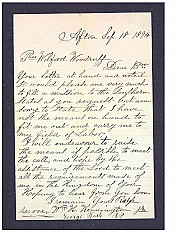 Afton Sep 18 1894
Pres Wilford Woodruff
Dear Bro.
Your letter at hand and noted.
It would please me very much
to fill a mission to the Southern
States at you request but am
sorry to State that I have
not the means on hand to
fit me out and carry me to
my field of Labor.
I will endeavour to raise
the means if possible to meet
the call, and hope by the
assistance of the Lord to meet
all the requirements made of
me in the Kingdom of God.
Hopeing to hear from you Soon
I remain Your
W. H. Kennington